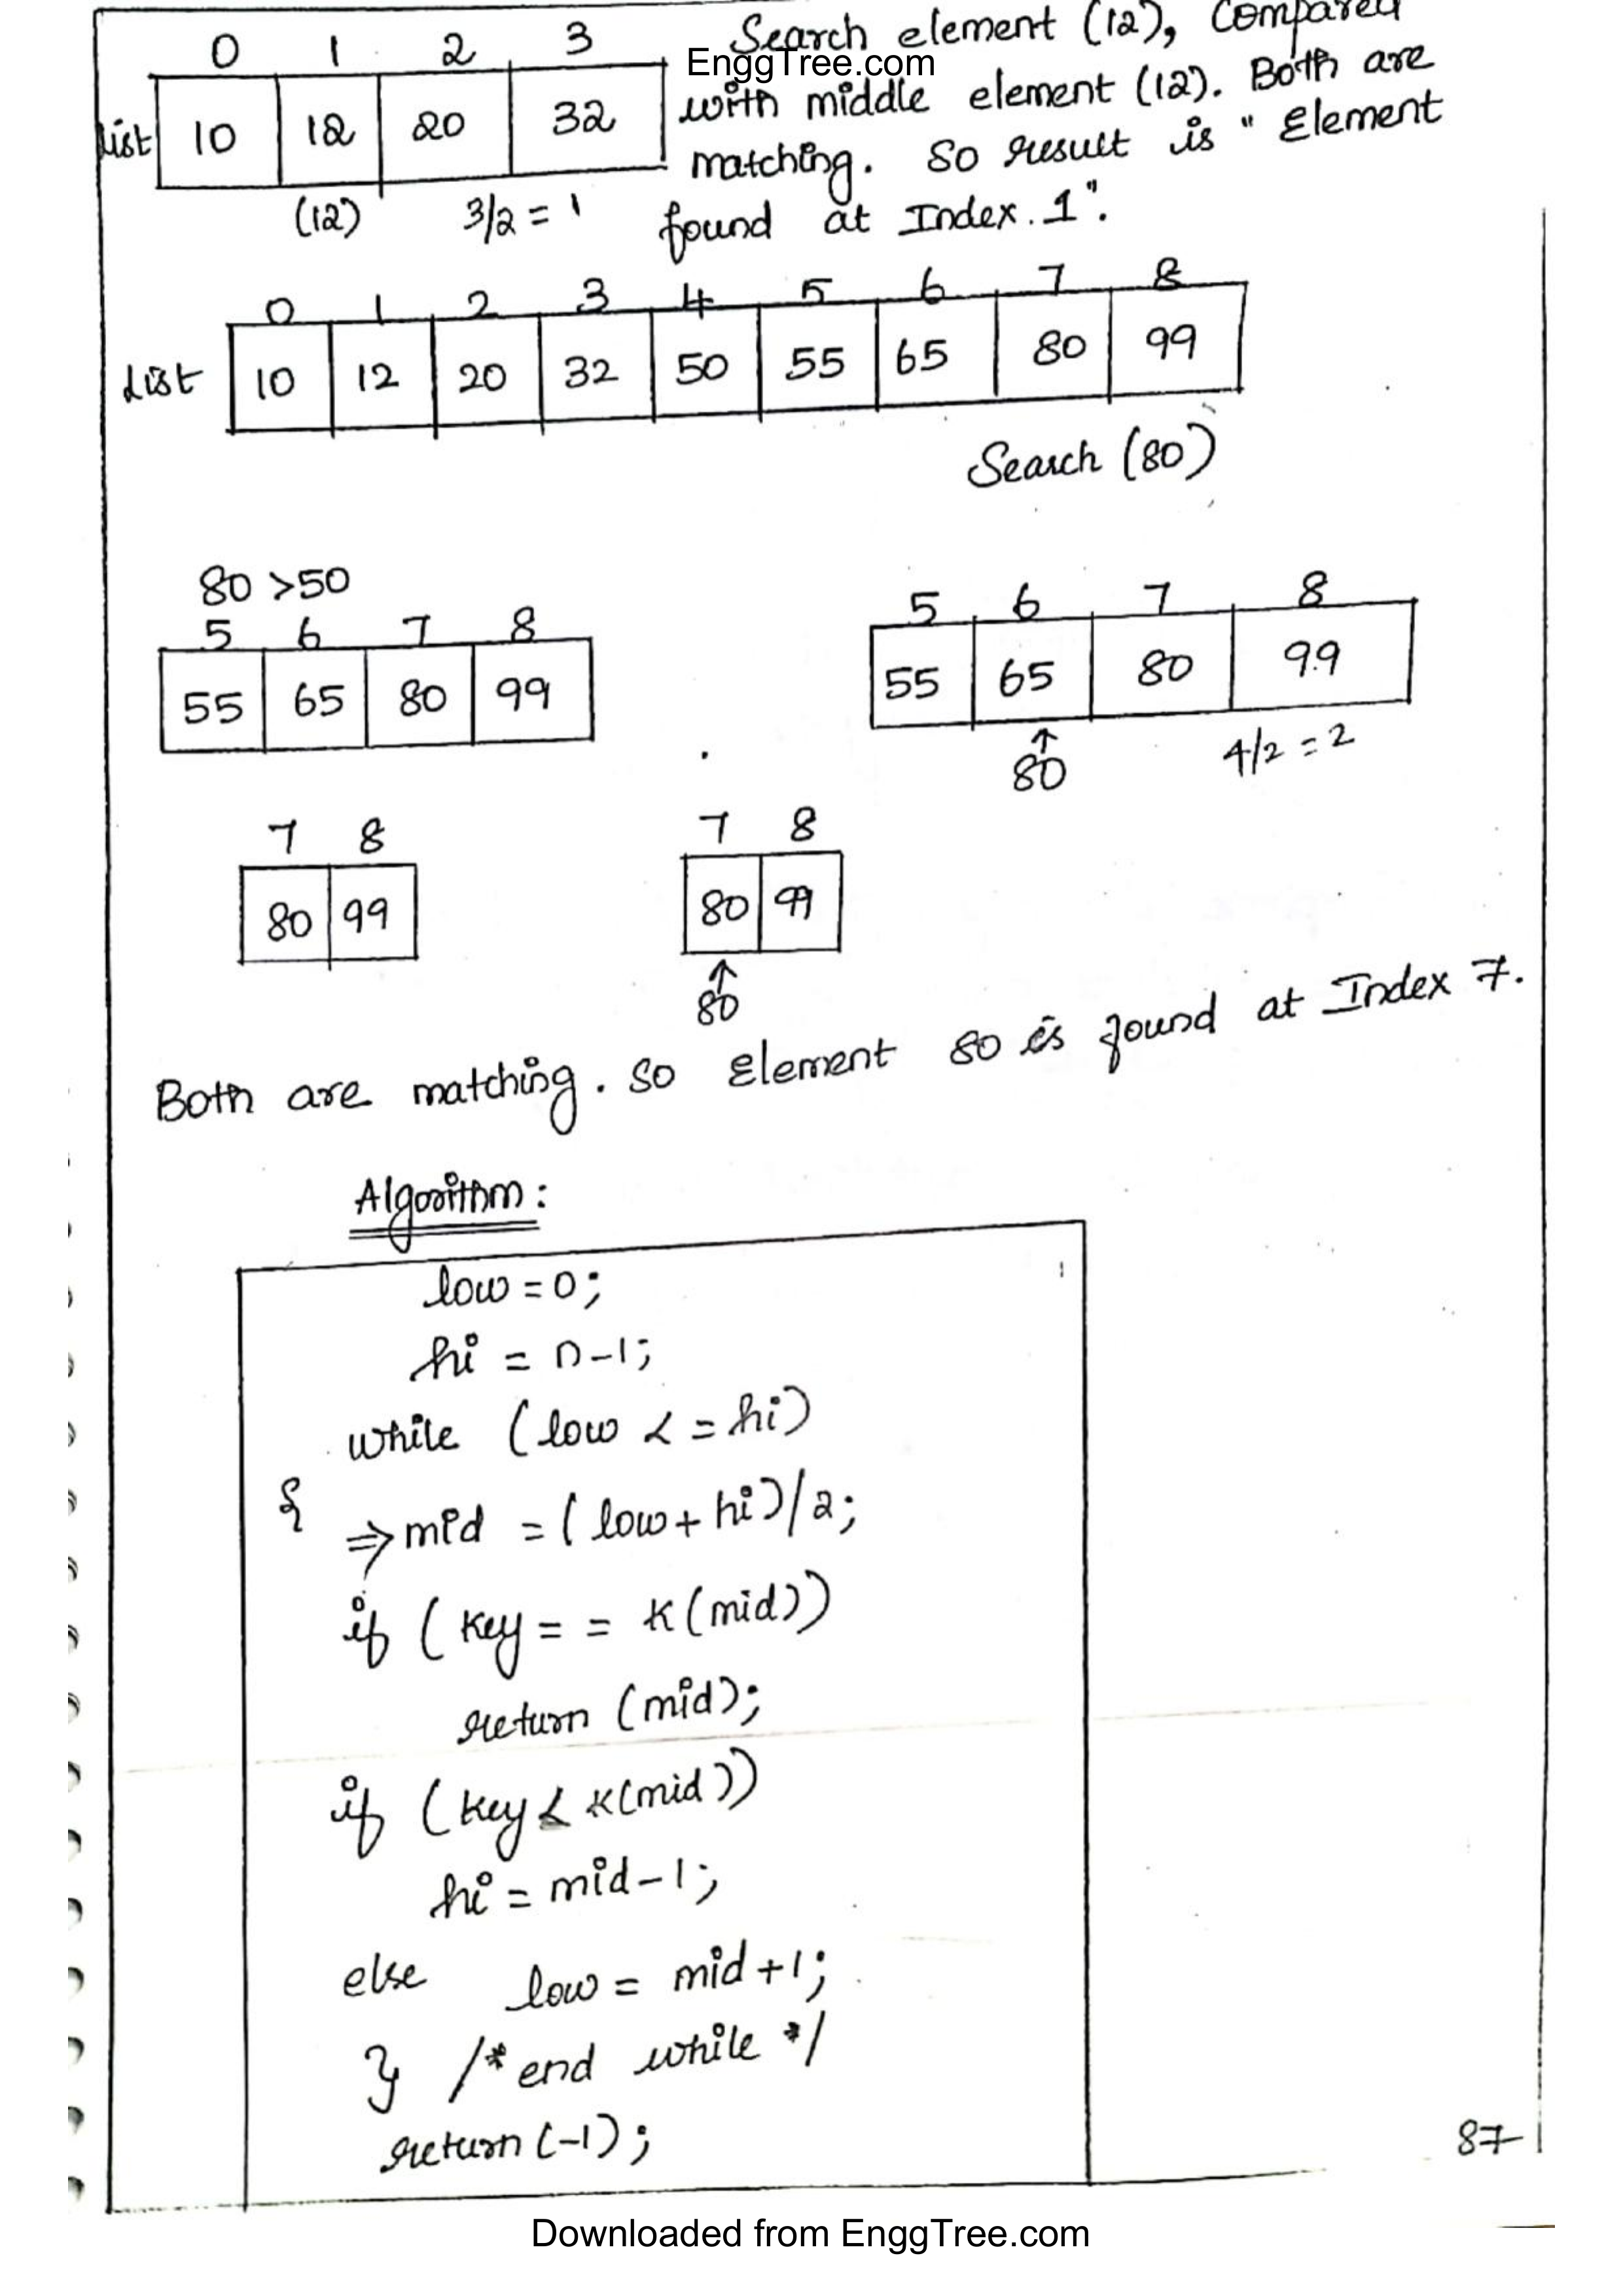 0 1 2 3
Search element (12), Compared
EnggTree.com
list 10 12 20 32
with middle element (12). Both are
matching. So result is " Element
(12) 3/2 = 1
found at Index. 1".
0 1 2 3 4 5 6 7 8
List 10 12 20 32 50 55 65 80 99
Search (80)
80 >50
5 6 7 8
55 65 80 99
5 6 7 8
55 65 80 9.9
80
4/2 = 2
7 8
80 99
7 8
80 99
80
Both are matching. So Element 80 is found at Index 7.
Algorithm:
low = 0;
hi = n-1;
while (low < = hi)
{
⇒ mid = (low + hi)/2;
if (key = = K(mid))
return (mid);
if (key < K(mid))
hi = mid-1;
else low = mid+1;
} /* end while */
return (-1);
87
Downloaded from EnggTree.com